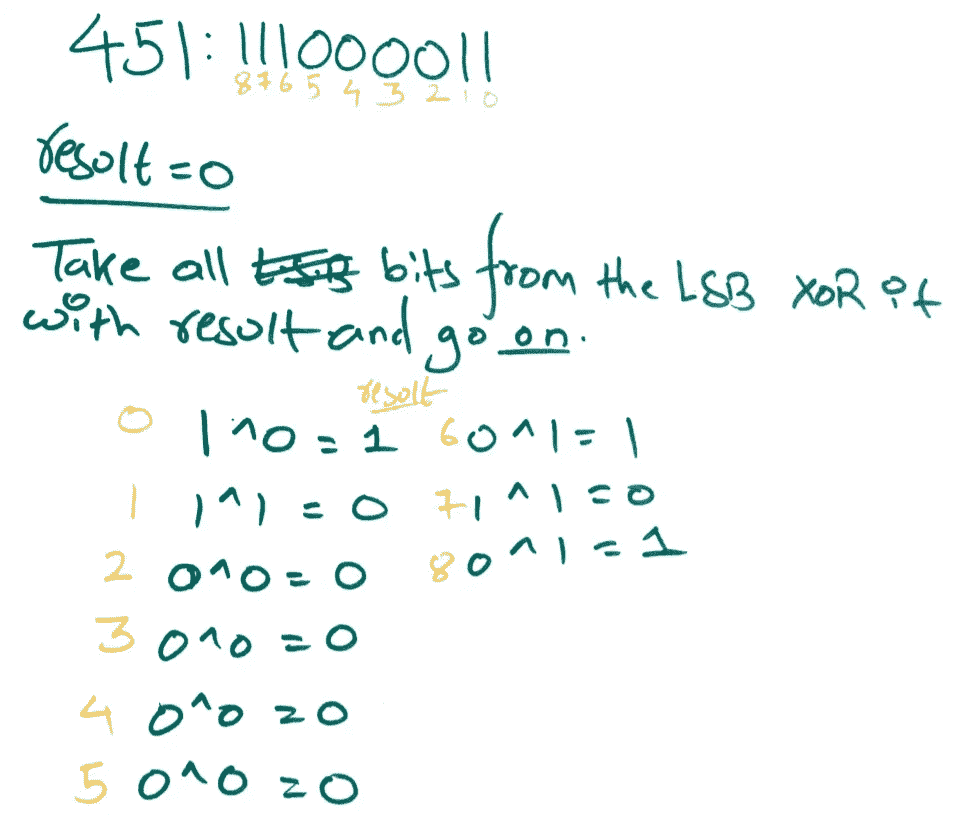 451: 111000011
8 7 6 5 4 3 2 1 0
result = 0
Take all bits from the LSB XOR it
with result and go on.
result
0 1 ^ 0 = 1 6 0 ^ 1 = 1
1 1 ^ 1 = 0 7 1 ^ 1 = 0
2 0 ^ 0 = 0 8 0 ^ 1 = 1
3 0 ^ 0 = 0
4 0 ^ 0 = 0
5 0 ^ 0 = 0